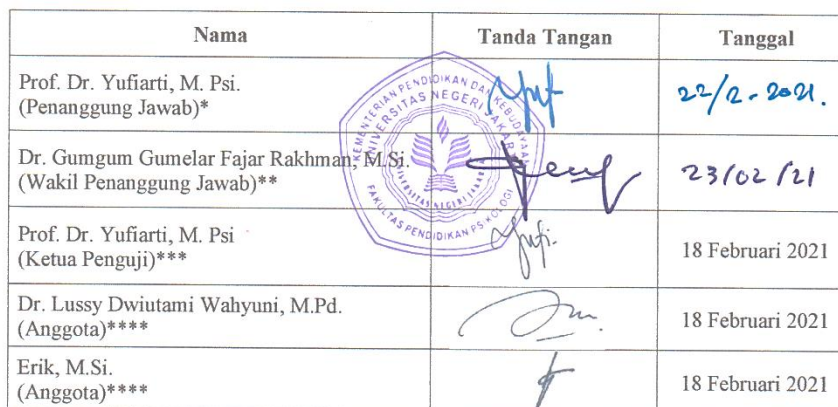 Nama Tanda Tangan Tanggal
Prof. Dr. Yufiarti, M. Psi.
(Penanggung Jawab)*
22/2-2021.
Dr. Gumgum Gumelar Fajar Rakhman, M.Si.
(Wakil Penanggung Jawab)**
23/02/21
Prof. Dr. Yufiarti, M. Psi
(Ketua Penguji)***
18 Februari 2021
Dr. Lussy Dwiutami Wahyuni, M.Pd.
(Anggota)****
18 Februari 2021
Erik, M.Si.
(Anggota)****
18 Februari 2021
KEMENTERIAN PENDIDIKAN DAN KEBUDAYAAN
UNIVERSITAS NEGERI JAKARTA
UNIVERSITAS NEGERI JAKARTA
FAKULTAS PENDIDIKAN PSIKOLOGI